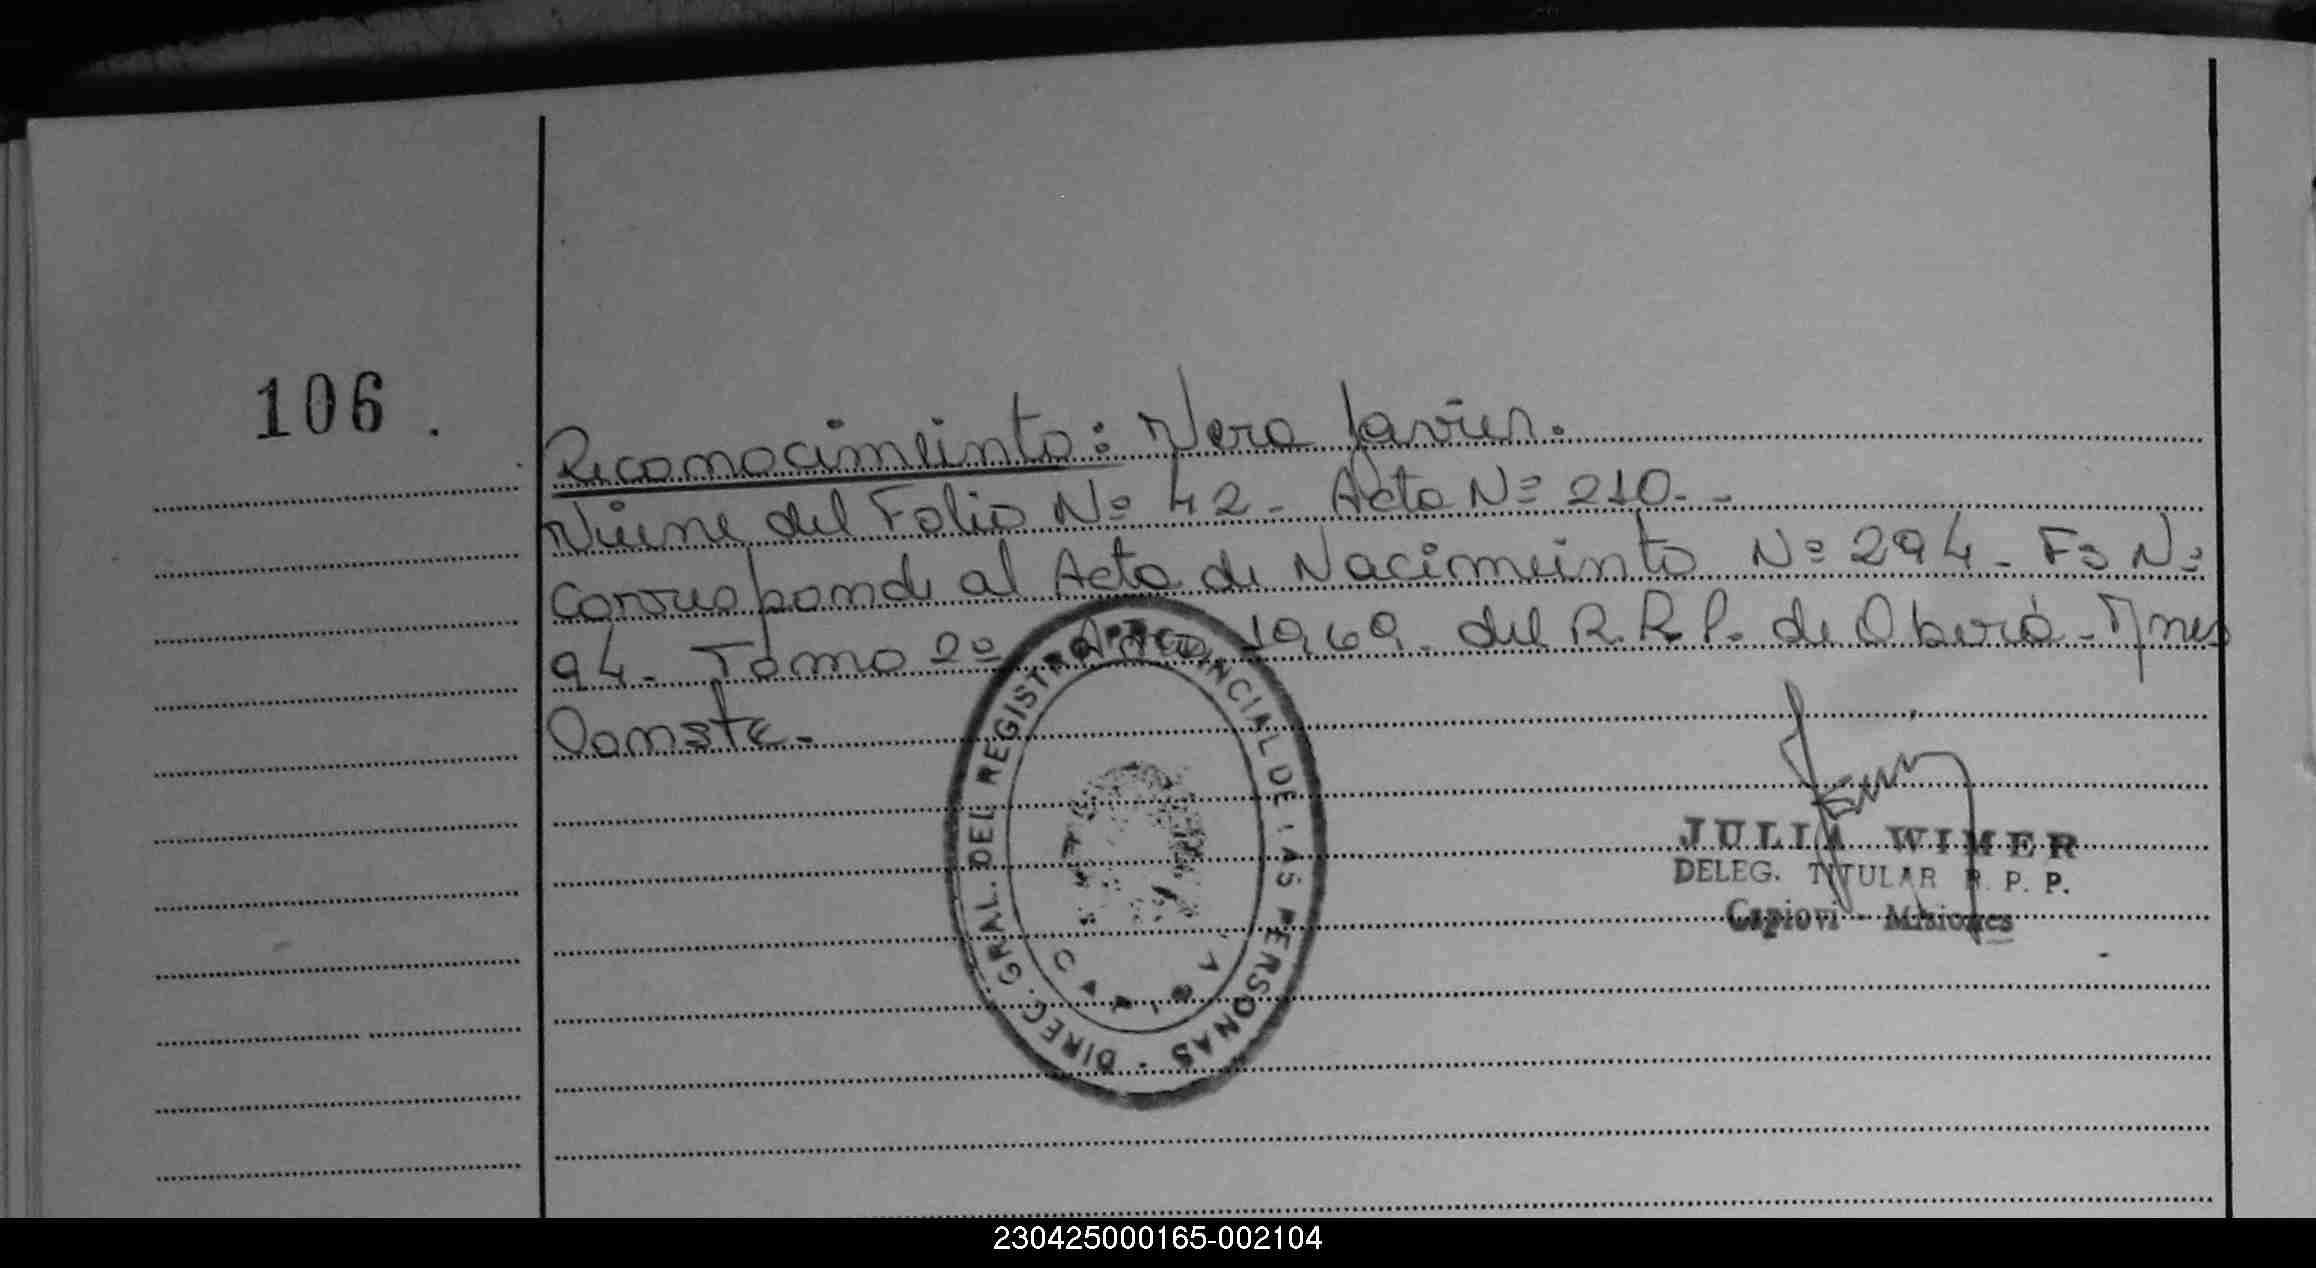 106.
Reconocimiento: Vera Javier.
Viene del Folio Nº 42 - Acta Nº 210. -
Corresponde al Acta de Nacimiento Nº 294 - Fº Nº
94 - Tomo 2º Año 1969. del R.R.P. de Oberá - Mnes
Conste. -
DIREC. GRAL. DEL REGISTRO PROVINCIAL DE LAS PERSONAS -
CAPIOVI
JULIA WIMER
DELEG. TITULAR R. P. P.
Capiovi - Misiones
230425000165-002104